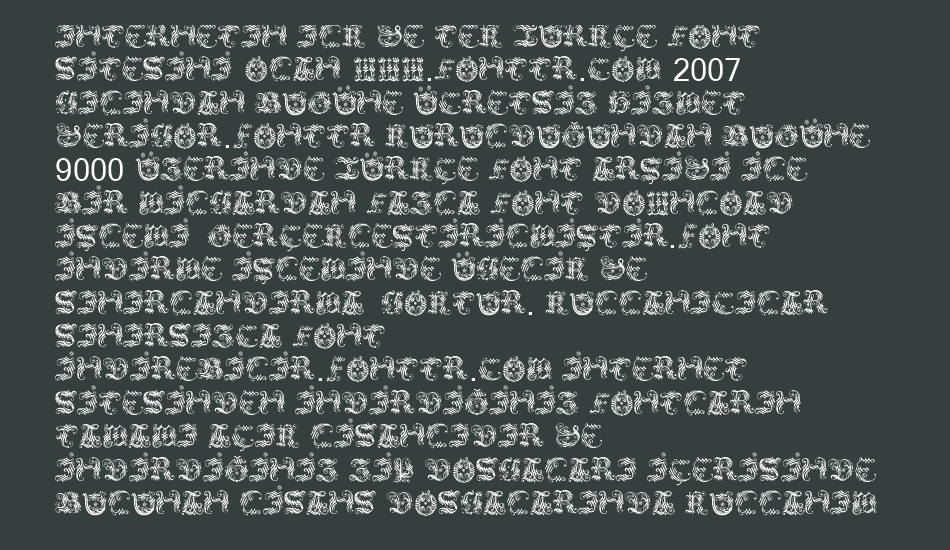 İNTERNETİN İLK VE TEK TÜRKÇE FONT
SİTESİNİ OLAN WWW.FONTTR.COM 2007
YILINDAN BUGÜNE ÜCRETSİZ HİZMET
VERİYOR.FONTTR KURULDUĞUNDAN BUGÜNE
9000 ÜZERİNDE TÜRKÇE FONT ARŞİVİ İLE
BİR MİLYARDAN FAZLA FONT DOWNLOAD
İŞLEMİ GERÇEKLEŞTİRİLMİŞTİR.FONT
İNDİRME İŞLEMİNDE ÜYELİK VE
SINIRLANDIRMA YOKTUR. KULLANICILAR
SINIRSIZCA FONT
İNDİREBİLİR.FONTTR.COM İNTERNET
SİTESİNDEN İNDİRDİĞİNİZ FONTLARIN
TAMAMI AÇIK LİSANLIDIR VE
İNDİRDİĞİNİZ ZİP DOSYALARI İÇERİSİNDE
BULUNAN LİSANS DOSYALARINDA KULLANIM